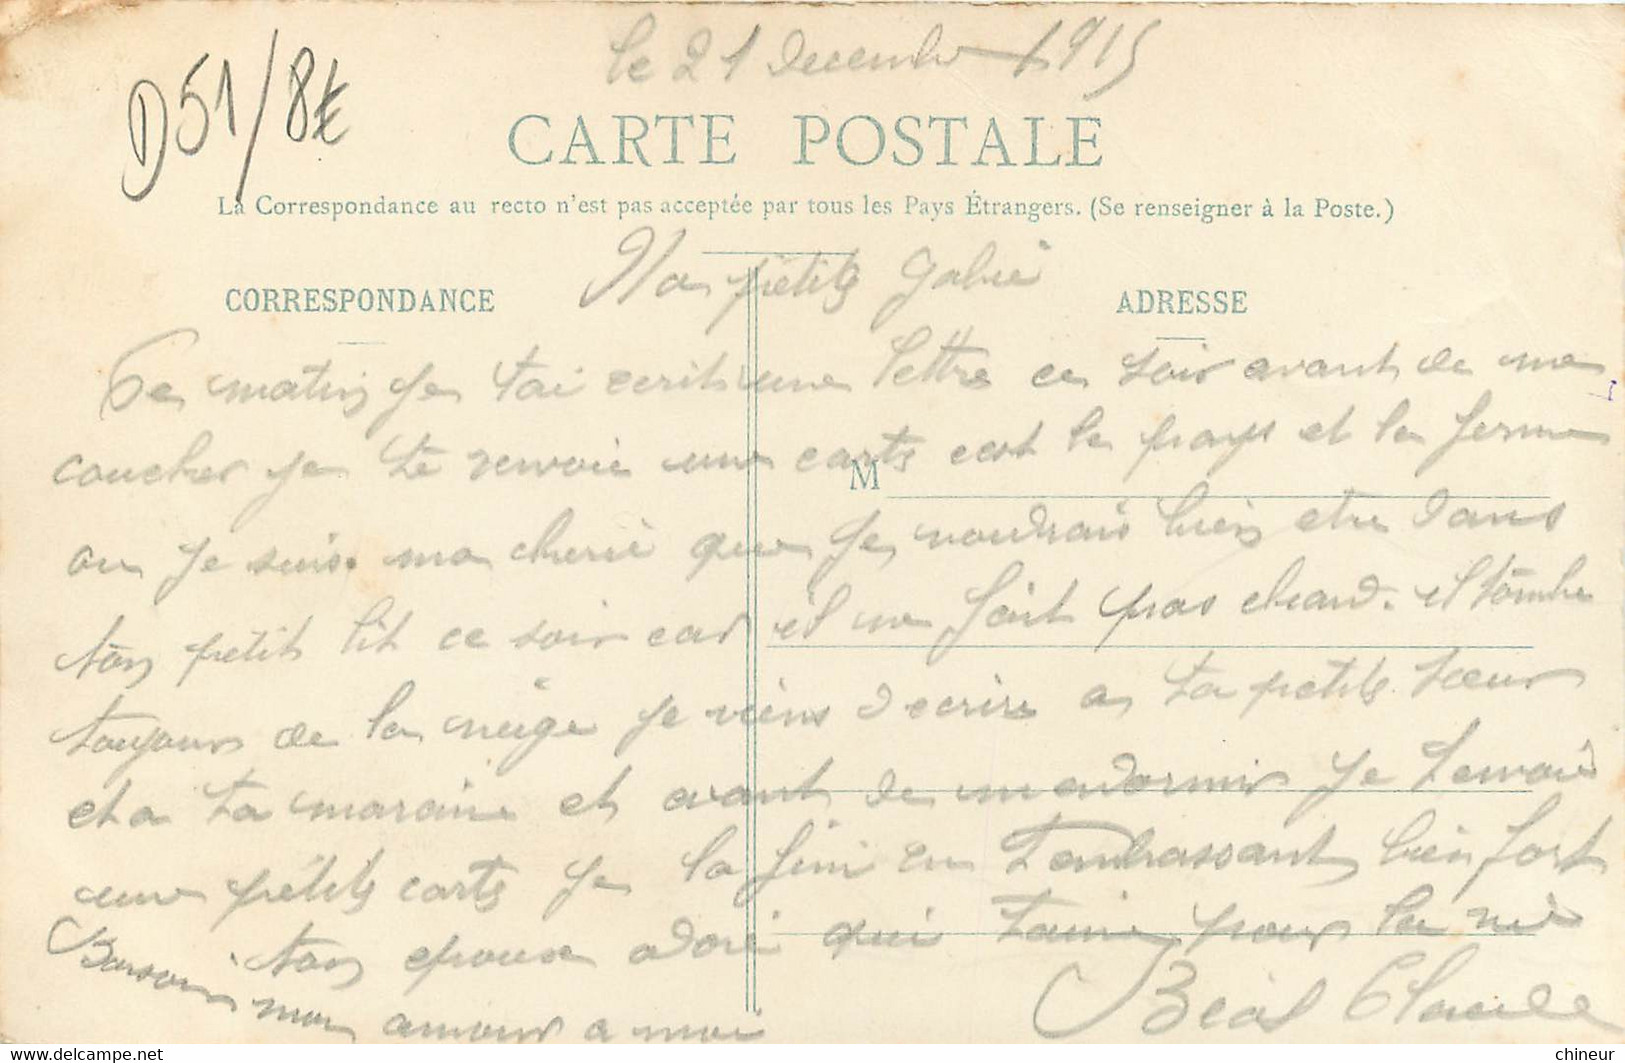 le 21 decembre 1915
D51/8€
CARTE POSTALE
La Correspondance au recto n'est pas acceptée par tous les Pays Étrangers. (Se renseigner à la Poste.)
Ma petite Gabie
CORRESPONDANCE
ADRESSE
Ce matin je tai ecrit une lettre ce soir avant de me
coucher je te renvoie une carte cest le pays et la ferme
M
ou je suis. ma cherie que je voudrais bien etre dans
ton petit lit ce soir car il ne fait pas chaud. il tombe
toujours de la neige je viens decrire a ta petite sœur
et a ta maraine et avant de mendormir je tenvoie
une petite carte je la fini en tembrassant bien fort
ton epoux adoré qui taime pour la vie
Bonsoir mon amour a moi
Béal Claude
chineur